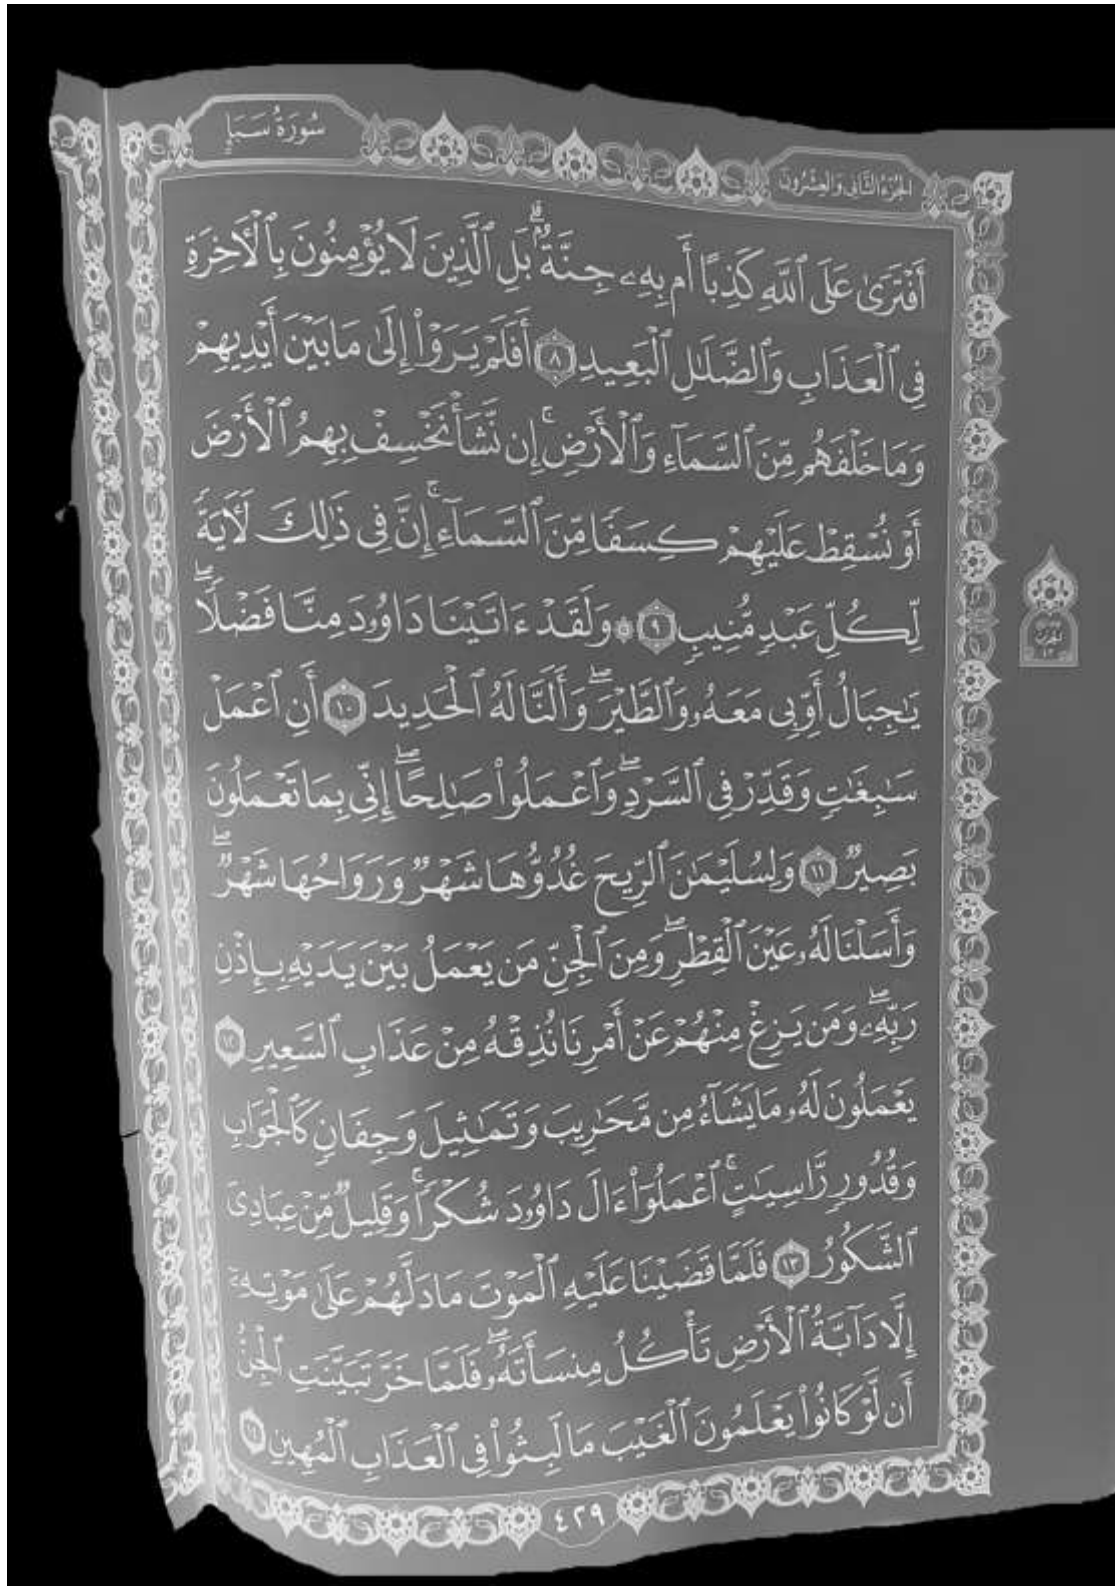 الجُزْءُ الثَّانِي وَالعِشْرُونَ
سُورَةُ سَبَإٍ
أَفْتَرَىٰ عَلَى ٱللَّهِ كَذِبًا أَم بِهِۦ جِنَّةٌۢ ۗ بَلِ ٱلَّذِينَ لَا يُؤْمِنُونَ بِٱلْأَخِرَةِ
فِى ٱلْعَذَابِ وَٱلضَّلَٰلِ ٱلْبَعِيدِ ٨ أَفَلَمْ يَرَوْا۟ إِلَىٰ مَا بَيْنَ أَيْدِيهِمْ
وَمَا خَلْفَهُم مِّنَ ٱلسَّمَآءِ وَٱلْأَرْضِ ۚ إِن نَّشَأْ نَخْسِفْ بِهِمُ ٱلْأَرْضَ
أَوْ نُسْقِطْ عَلَيْهِمْ كِسَفًا مِّنَ ٱلسَّمَآءِ ۚ إِنَّ فِى ذَٰلِكَ لَأَيَةً
لِّكُلِّ عَبْدٍ مُّنِيبٍ ٩ ۞ وَلَقَدْ ءَاتَيْنَا دَاوُۥدَ مِنَّا فَضْلًا ۖ
يَٰجِبَالُ أَوِّبِى مَعَهُۥ وَٱلطَّيْرَ ۖ وَأَلَنَّا لَهُ ٱلْحَدِيدَ ١٠ أَنِ ٱعْمَلْ
سَٰبِغَٰتٍ وَقَدِّرْ فِى ٱلسَّرْدِ ۖ وَٱعْمَلُوا۟ صَٰلِحًا ۖ إِنِّى بِمَا تَعْمَلُونَ
بَصِيرٌ ١١ وَلِسُلَيْمَٰنَ ٱلرِّيحَ غُدُوُّهَا شَهْرٌ وَرَوَاحُهَا شَهْرٌ ۖ
وَأَسَلْنَا لَهُۥ عَيْنَ ٱلْقِطْرِ ۖ وَمِنَ ٱلْجِنِّ مَن يَعْمَلُ بَيْنَ يَدَيْهِ بِإِذْنِ
رَبِّهِۦ ۖ وَمَن يَزِغْ مِنْهُمْ عَنْ أَمْرِنَا نُذِقْهُ مِنْ عَذَابِ ٱلسَّعِيرِ ١٢
يَعْمَلُونَ لَهُۥ مَا يَشَآءُ مِن مَّحَٰرِيبَ وَتَمَٰثِيلَ وَجِفَانٍ كَٱلْجَوَابِ
وَقُدُورٍ رَّاسِيَٰتٍ ۚ ٱعْمَلُوٓا۟ ءَالَ دَاوُۥدَ شُكْرًا ۚ وَقَلِيلٌ مِّنْ عِبَادِىَ
ٱلشَّكُورُ ١٣ فَلَمَّا قَضَيْنَا عَلَيْهِ ٱلْمَوْتَ مَا دَلَّهُمْ عَلَىٰ مَوْتِهِۦٓ
إِلَّا دَآبَّةُ ٱلْأَرْضِ تَأْكُلُ مِنسَأَتَهُۥ ۖ فَلَمَّا خَرَّ تَبَيَّنَتِ ٱلْجِنُّ
أَن لَّوْ كَانُوا۟ يَعْلَمُونَ ٱلْغَيْبَ مَا لَبِثُوا۟ فِى ٱلْعَذَابِ ٱلْمُهِينِ ١٤
٤٢٩